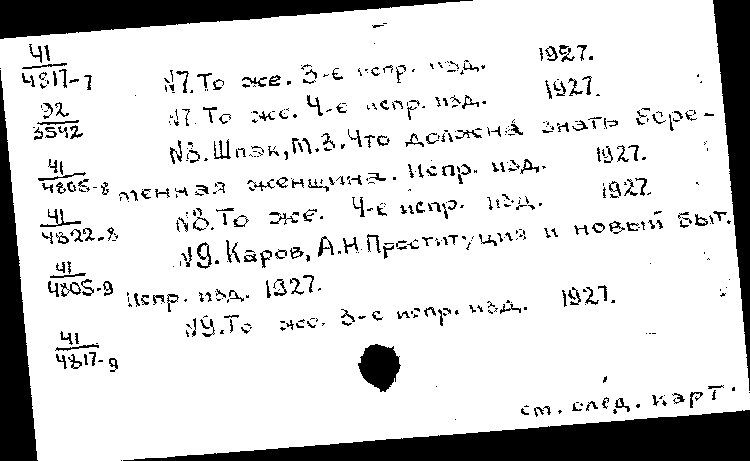 41
4817-7
№7. То же. 3-е испр. изд. 1927.
92
3542
№7. То же. 4-е испр. изд. 1927.
№8. Шпак, М.З. Что должна знать бере-
41
4805-8
менная женщина. Испр. изд. 1927.
41
4822-8
№8. То же. 4-е испр. изд. 1927
№9. Каров, А.Н. Проституция и новый быт.
41
4805-9
Испр. изд. 1927.
41
4817-9
№9. То же. 3-е испр. изд. 1927.
ст. след. карт.